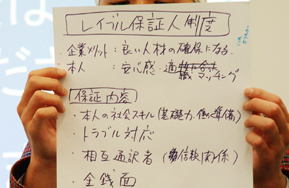 レイブル保証人制度
企業メリット：良い人材の確保になる
本人：安心感 適職マッチング
保証内容
・本人の社会スキル(基礎力、働く準備)
・トラブル対応
・相互通訳者(信頼関係)
・金銭面